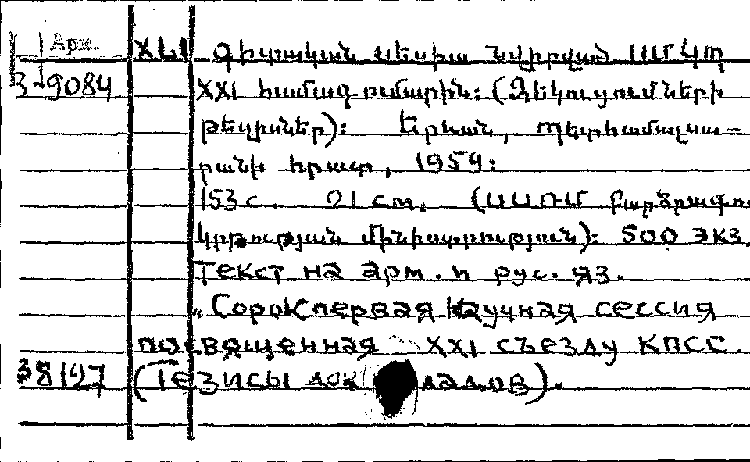 Арм.
XLI գիտական սեսիա նվիրված ՍՄԿՊ
3-9084 XXI համագումարին: (Զեկուցումների
թեզիսներ): Երևան, պետհամալսա-
րանի հրատ, 1959:
153 с. 21 см. (ՍՍՌՄ Բարձրագույն
կրթության մինիստրություն): 500 экз.
Текст на арм. и рус. яз.
„Сорок первая научная сессия
посвященная XXI съезду КПСС.
38197 (Тезисы докладов).